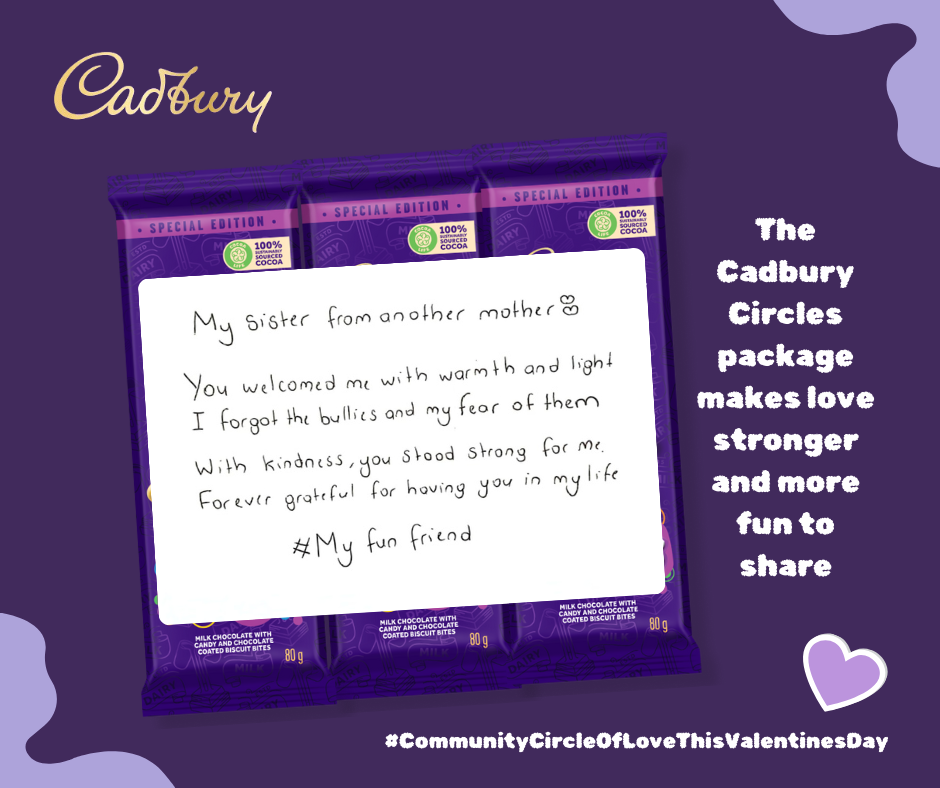 Cadbury
• SPECIAL EDITION •
• SPECIAL EDITION •
• SPECIAL EDITION •
COCOA LIFE
100%
SUSTAINABLY
SOURCED
COCOA
COCOA LIFE
100%
SUSTAINABLY
SOURCED
COCOA
COCOA LIFE
100%
SUSTAINABLY
SOURCED
COCOA
My sister from another mother
You welcomed me with warmth and light
I forgot the bullies and my fear of them
With kindness, you stood strong for me.
Forever grateful for having you in my life
#My fun friend
MILK CHOCOLATE WITH
CANDY AND CHOCOLATE
COATED BISCUIT BITES
80 g
MILK CHOCOLATE WITH
CANDY AND CHOCOLATE
COATED BISCUIT BITES
80 g
MILK CHOCOLATE WITH
CANDY AND CHOCOLATE
COATED BISCUIT BITES
80 g
The
Cadbury
Circles
package
makes love
stronger
and more
fun to
share
#CommunityCircleOfLoveThisValentinesDay